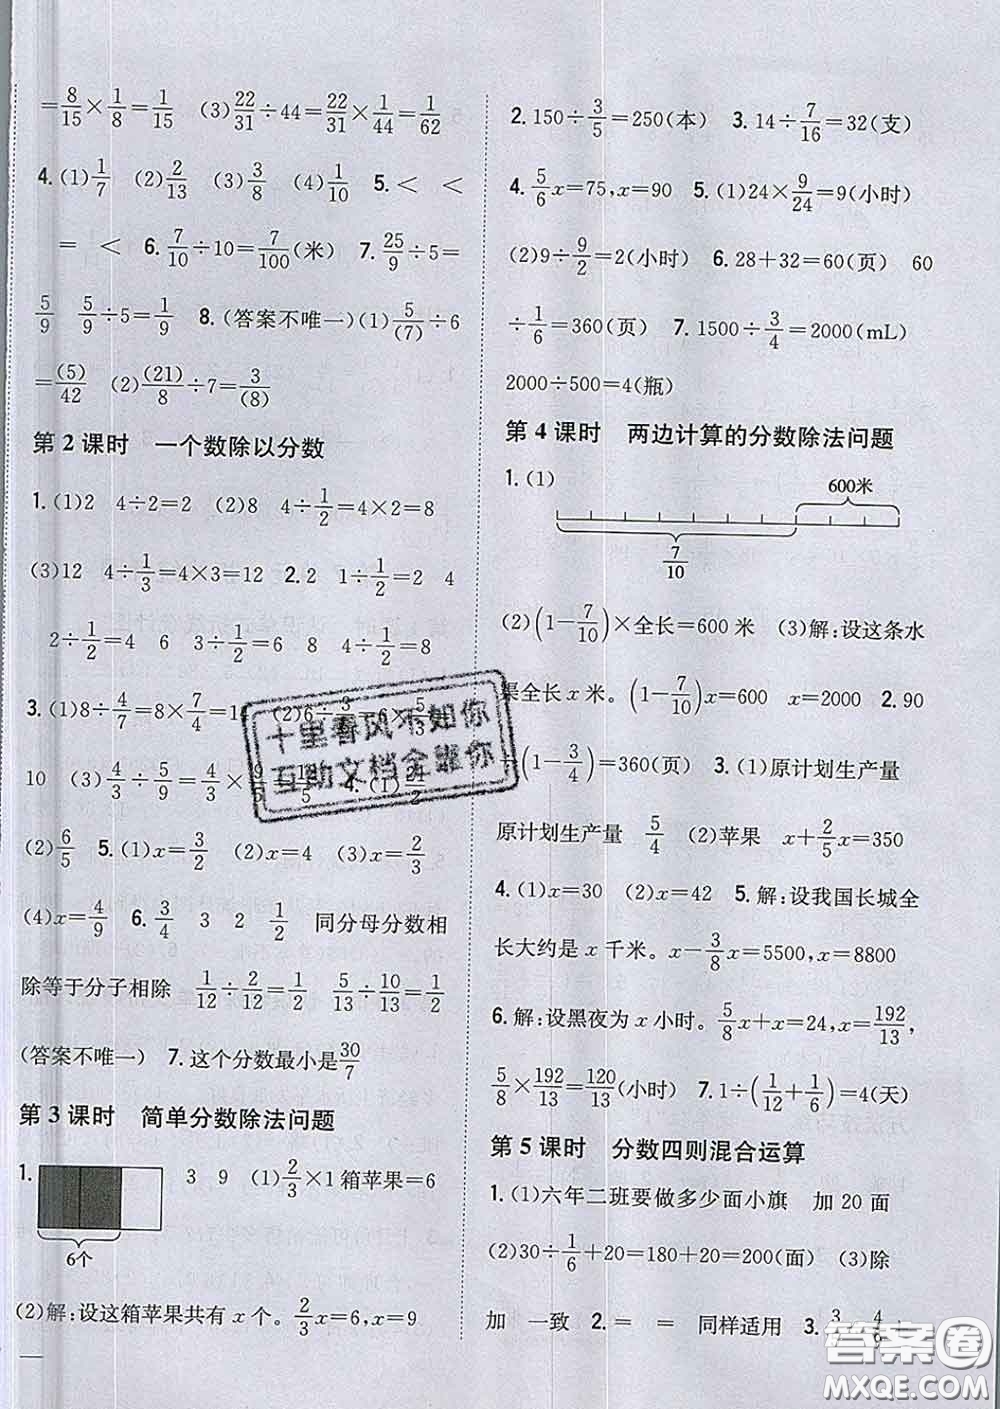 =8/15×1/8=1/15 (3)22/31÷44=22/31×1/44=1/62
4.(1)1/7 (2)2/13 (3)3/8 (4)1/10 5.< <
= < 6.7/10÷10=7/100(米) 7.25/9÷5=
5/9 5/9÷5=1/9 8.(答案不唯一)(1)5/(7)÷6
=(5)/42 (2)(21)/8÷7=3/(8)
第2课时 一个数除以分数
1.(1)2 4÷2=2 (2)8 4÷1/2=4×2=8
(3)12 4÷1/3=4×3=12 2.2 1÷1/2=2 4
2÷1/2=4 6 3÷1/2=6 8 4÷1/2=8
3.(1)8÷4/7=8×7/4=14 (2)6÷
10 (3)4/3÷5/9=4/3×9/5= 4.(1)
(2)6/5 5.(1)x=3/2 (2)x=6 (3)x=2/3
(4)x=4/9 6.3/4 3 2 1/2 同分母分数相
除等于分子相除 1/12÷2/12=1/2 5/13÷10/13=1/2
(答案不唯一) 7.这个分数最小是30/7
第3课时 简单分数除法问题
1. 3 9 (1)2/3×1箱苹果=6
6个
(2)解:设这箱苹果共有x个。2/3x=6,x=9
2.150÷3/5=250(本) 3.14÷7/16=32(支)
4.5/6x=75,x=90 5.(1)24×9/24=9(小时)
(2)9÷9/2=2(小时) 6.28+32=60(页) 60
÷1/6=360(页) 7.1500÷3/4=2000(mL)
2000÷500=4(瓶)
第4课时 两边计算的分数除法问题
1.(1) 600米
7/10
(2)(1-7/10)×全长=600米 (3)解:设这条水
渠全长x米。(1-7/10)x=600 x=2000 2.90
÷(1-3/4)=360(页) 3.(1)原计划生产量
原计划生产量 5/4 (2)苹果 x+2/5x=350
4.(1)x=30 (2)x=42 5.解:设我国长城全
长大约是x千米。x-3/8x=5500,x=8800
6.解:设黑夜为x小时。5/8x+x=24,x=192/13,
5/8×192/13=120/13(小时) 7.1÷(1/12+1/6)=4(天)
第5课时 分数四则混合运算
1.(1)六年二班要做多少面小旗 加20面
(2)30÷1/6+20=180+20=200(面) (3)除
加 一致 2.= = 同样适用 3.3/ 4/9
十里春风不如你
互助文档全靠你
答案圈
MXQE.COM